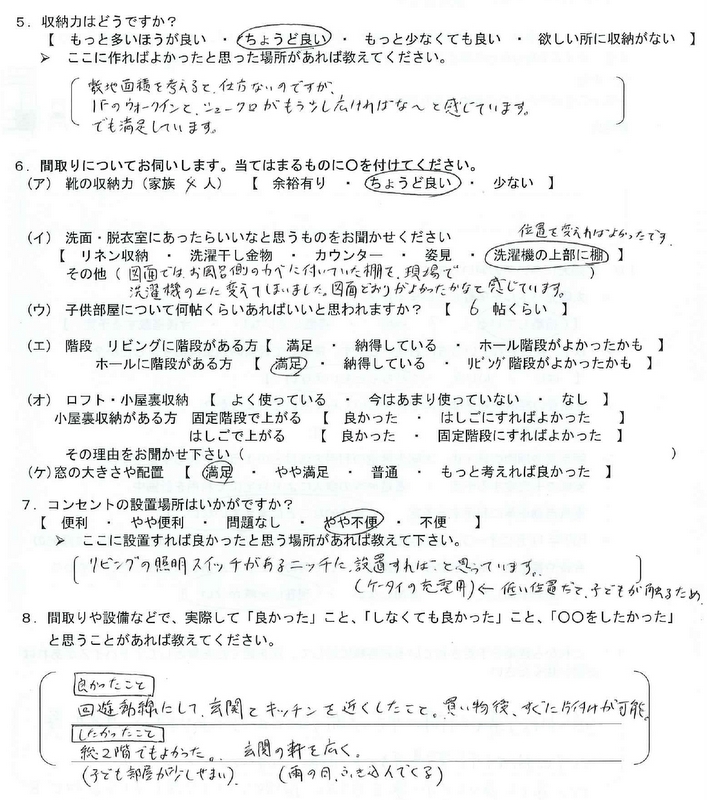 5．収納力はどうですか？
【 もっと多いほうが良い ・ ちょうど良い ・ もっと少なくても良い ・ 欲しい所に収納がない 】
➢ ここに作ればよかったと思った場所があれば教えてください。
敷地面積を考えると、仕方ないのですが、
1Fのウォークインと、シュークロがもう少し広ければな〜と感じています。
でも満足しています。
6．間取りについてお伺いします。当てはまるものに〇を付けてください。
（ア） 靴の収納力（家族 4 人） 【 余裕有り ・ ちょうど良い ・ 少ない 】
位置を変えればよかったです
（イ） 洗面・脱衣室にあったらいいなと思うものをお聞かせください
【 リネン収納 ・ 洗濯干し金物 ・ カウンター ・ 姿見 ・ 洗濯機の上部に棚 】
その他（ 図面では、お風呂側のカベに付いていた棚を、現場で ）
洗濯機の上に変えてしまいました。図面どおりがよかったかなと感じています。
（ウ） 子供部屋について何帖くらいあればいいと思われますか？ 【 6 帖くらい 】
（エ） 階段 リビングに階段がある方【 満足 ・ 納得している ・ ホール階段がよかったかも 】
ホールに階段がある方 【 満足 ・ 納得している ・ リビング階段がよかったかも 】
（オ） ロフト・小屋裏収納 【 よく使っている ・ 今はあまり使っていない ・ なし 】
小屋裏収納がある方 固定階段で上がる 【 良かった ・ はしごにすればよかった 】
はしごで上がる 【 良かった ・ 固定階段にすればよかった 】
その理由をお聞かせ下さい（ ）
（ケ）窓の大きさや配置 【 満足 ・ やや満足 ・ 普通 ・ もっと考えれば良かった 】
7．コンセントの設置場所はいかがですか？
【 便利 ・ やや便利 ・ 問題なし ・ やや不便 ・ 不便 】
➢ ここに設置すれば良かったと思う場所があれば教えて下さい。
リビングの照明スイッチがあるニッチに、設置すれば、と思っています。
（ケータイの充電用）← 低い位置だと、子どもが触るため
8．間取りや設備などで、実際して「良かった」こと、「しなくても良かった」こと、「〇〇をしたかった」
と思うことがあれば教えてください。
良かったこと
回遊動線にして、玄関とキッチンを近くしたこと。買い物後、すぐに片付けが可能。
したかったこと
総2階でもよかった。 玄関の軒を広く。
（子ども部屋が少しせまい） （雨の日、ふき込んでくる）